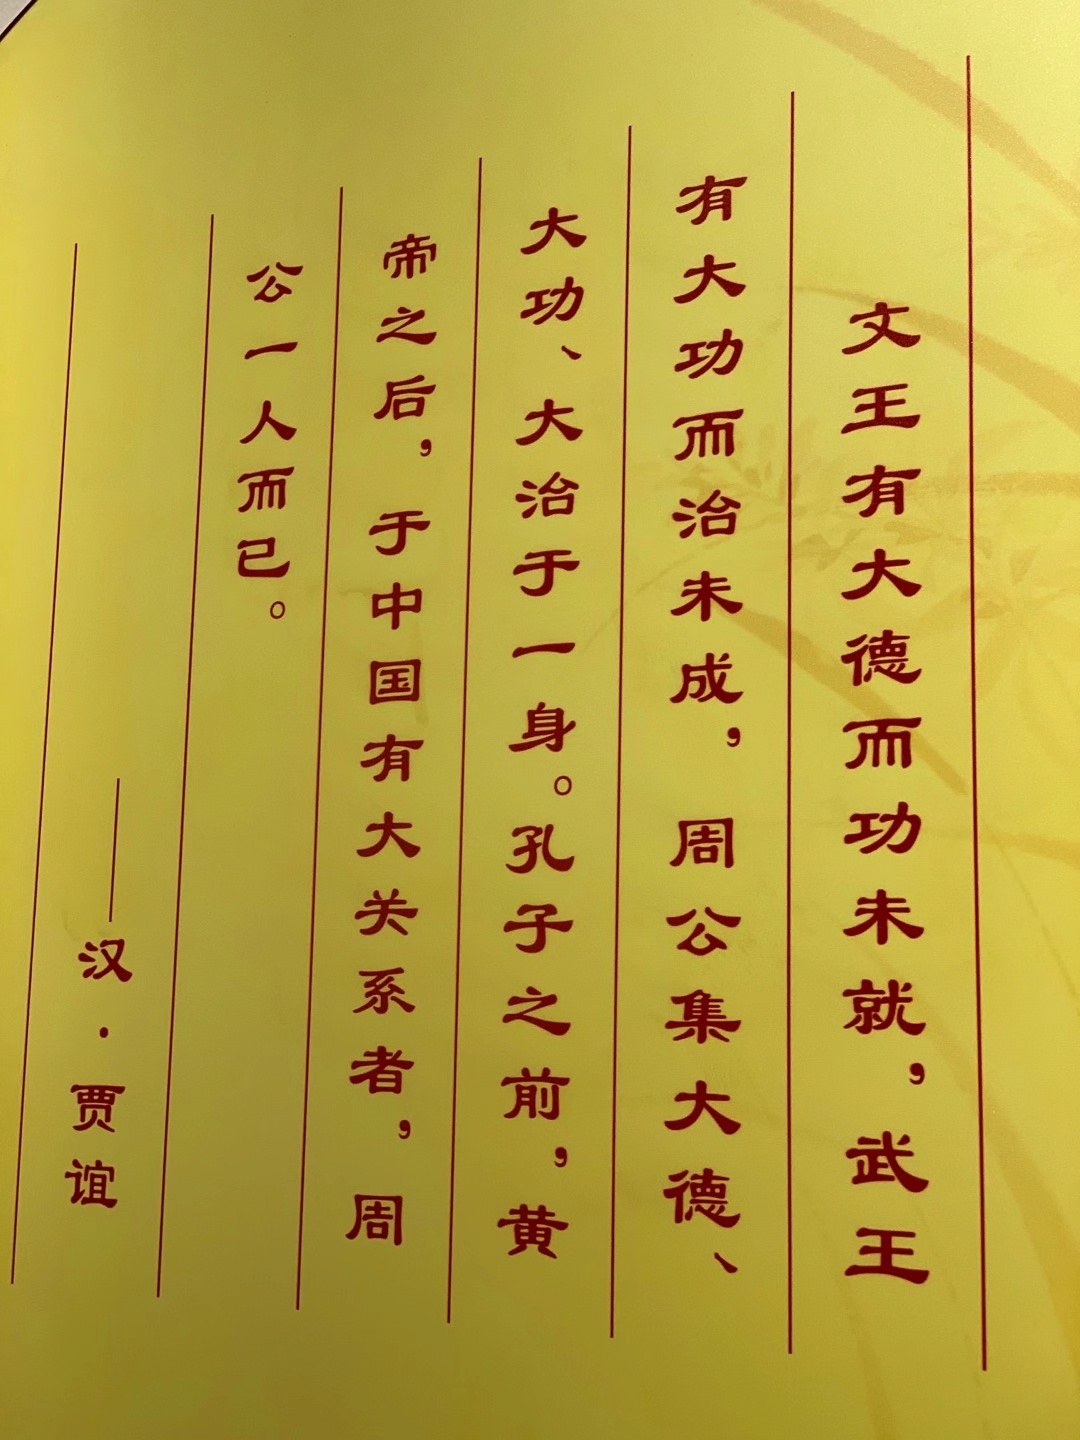 文王有大德而功未就，武王
有大功而治未成，周公集大德、
大功、大治于一身。孔子之前，黄
帝之后，于中国有大关系者，周
公一人而已。
——汉·贾谊